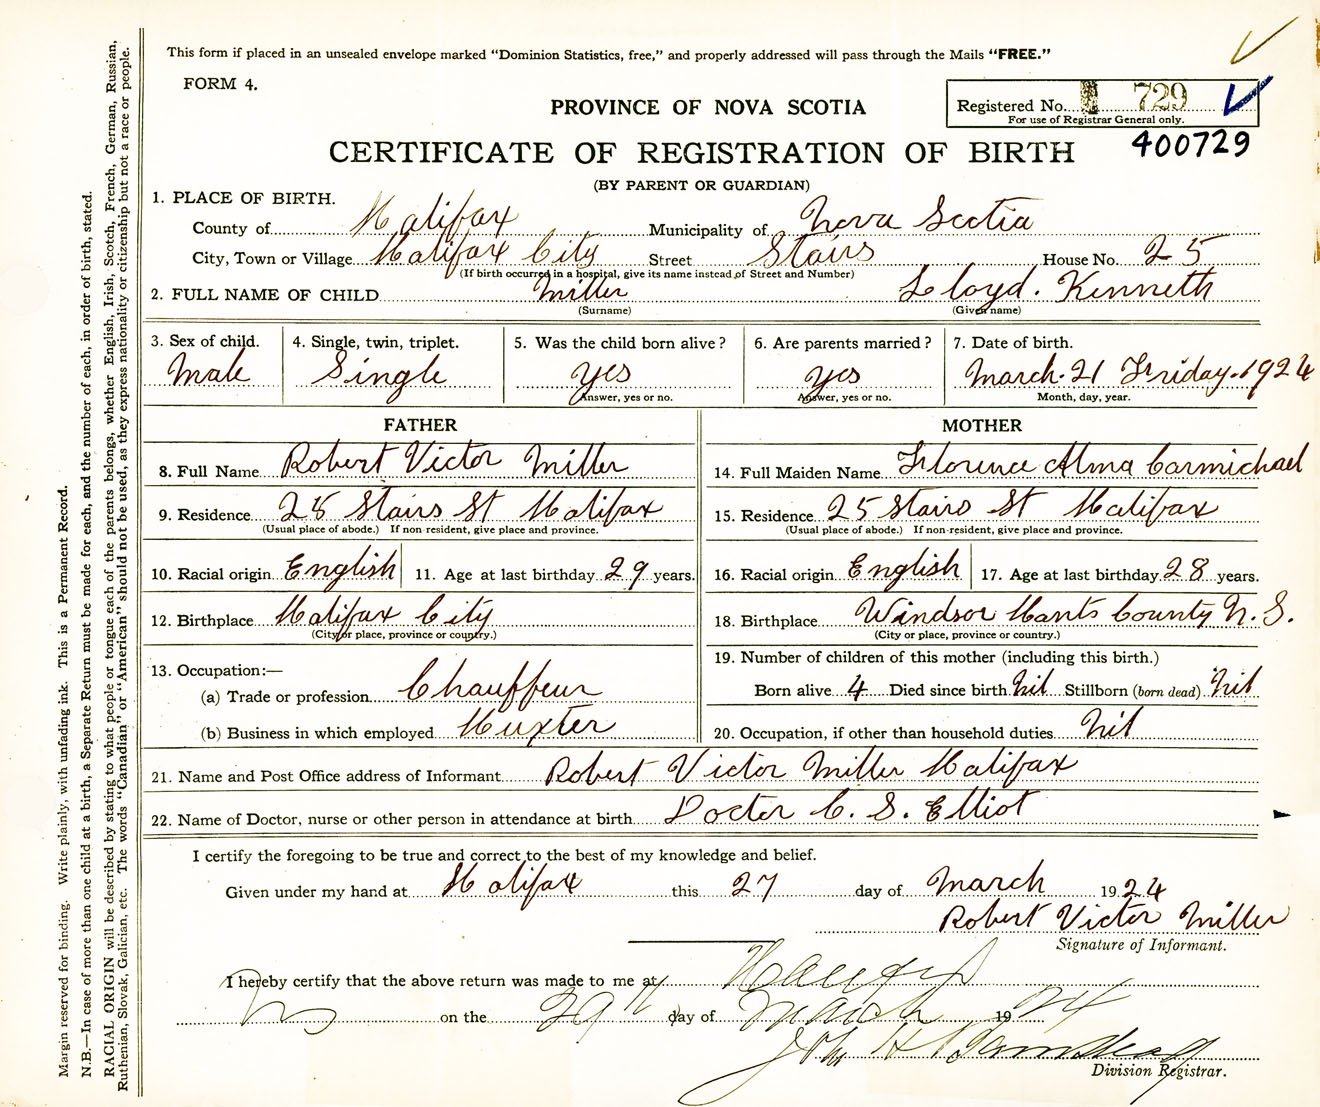 This form if placed in an unsealed envelope marked "Dominion Statistics, free," and properly addressed will pass through the Mails "FREE."
FORM 4.
Registered No. 729
For use of Registrar General only.
PROVINCE OF NOVA SCOTIA
400729
CERTIFICATE OF REGISTRATION OF BIRTH
(BY PARENT OR GUARDIAN)
1. PLACE OF BIRTH.
County of Halifax Municipality of Nova Scotia
City, Town or Village Halifax City Street Stairs House No. 25
(If birth occurred in a hospital, give its name instead of Street and Number)
2. FULL NAME OF CHILD Miller Lloyd. Kenneth
(Surname) (Given name)
3. Sex of child. 4. Single, twin, triplet. 5. Was the child born alive? 6. Are parents married? 7. Date of birth.
Male Single Yes Yes March. 21 Friday. 1924
Answer, yes or no. Answer, yes or no. Month, day, year.
FATHER
8. Full Name Robert Victor Miller
9. Residence 25 Stairs St Halifax
(Usual place of abode.) If non-resident, give place and province.
10. Racial origin English 11. Age at last birthday 29 years.
12. Birthplace Halifax City
(City or place, province or country.)
13. Occupation:—
(a) Trade or profession Chauffeur
(b) Business in which employed Huxter
MOTHER
14. Full Maiden Name Florence Alma Carmichael
15. Residence 25 Stairs St Halifax
(Usual place of abode.) If non-resident, give place and province.
16. Racial origin English 17. Age at last birthday 28 years.
18. Birthplace Windsor Hants County N. S.
(City or place, province or country.)
19. Number of children of this mother (including this birth.)
Born alive 4 Died since birth Nil Stillborn (born dead) Nil
20. Occupation, if other than household duties Nil
21. Name and Post Office address of Informant Robert Victor Miller Halifax
22. Name of Doctor, nurse or other person in attendance at birth Doctor C. S. Elliot
I certify the foregoing to be true and correct to the best of my knowledge and belief.
Given under my hand at Halifax this 27 day of March 1924
Robert Victor Miller
Signature of Informant.
I hereby certify that the above return was made to me at Halifax
on the 29th day of March 1924
Division Registrar.
Margin reserved for binding. Write plainly, with unfading ink. This is a Permanent Record.
N.B.—In case of more than one child at a birth, a Separate Return must be made for each, and the number of each, in order of birth, stated.
RACIAL ORIGIN will be described by stating to what people or tongue each of the parents belongs, whether English, Irish, Scotch, French, German, Russian,
Ruthenian, Slovak, Galician, etc. The words "Canadian" or "American" should not be used, as they express nationality or citizenship but not a race or people.